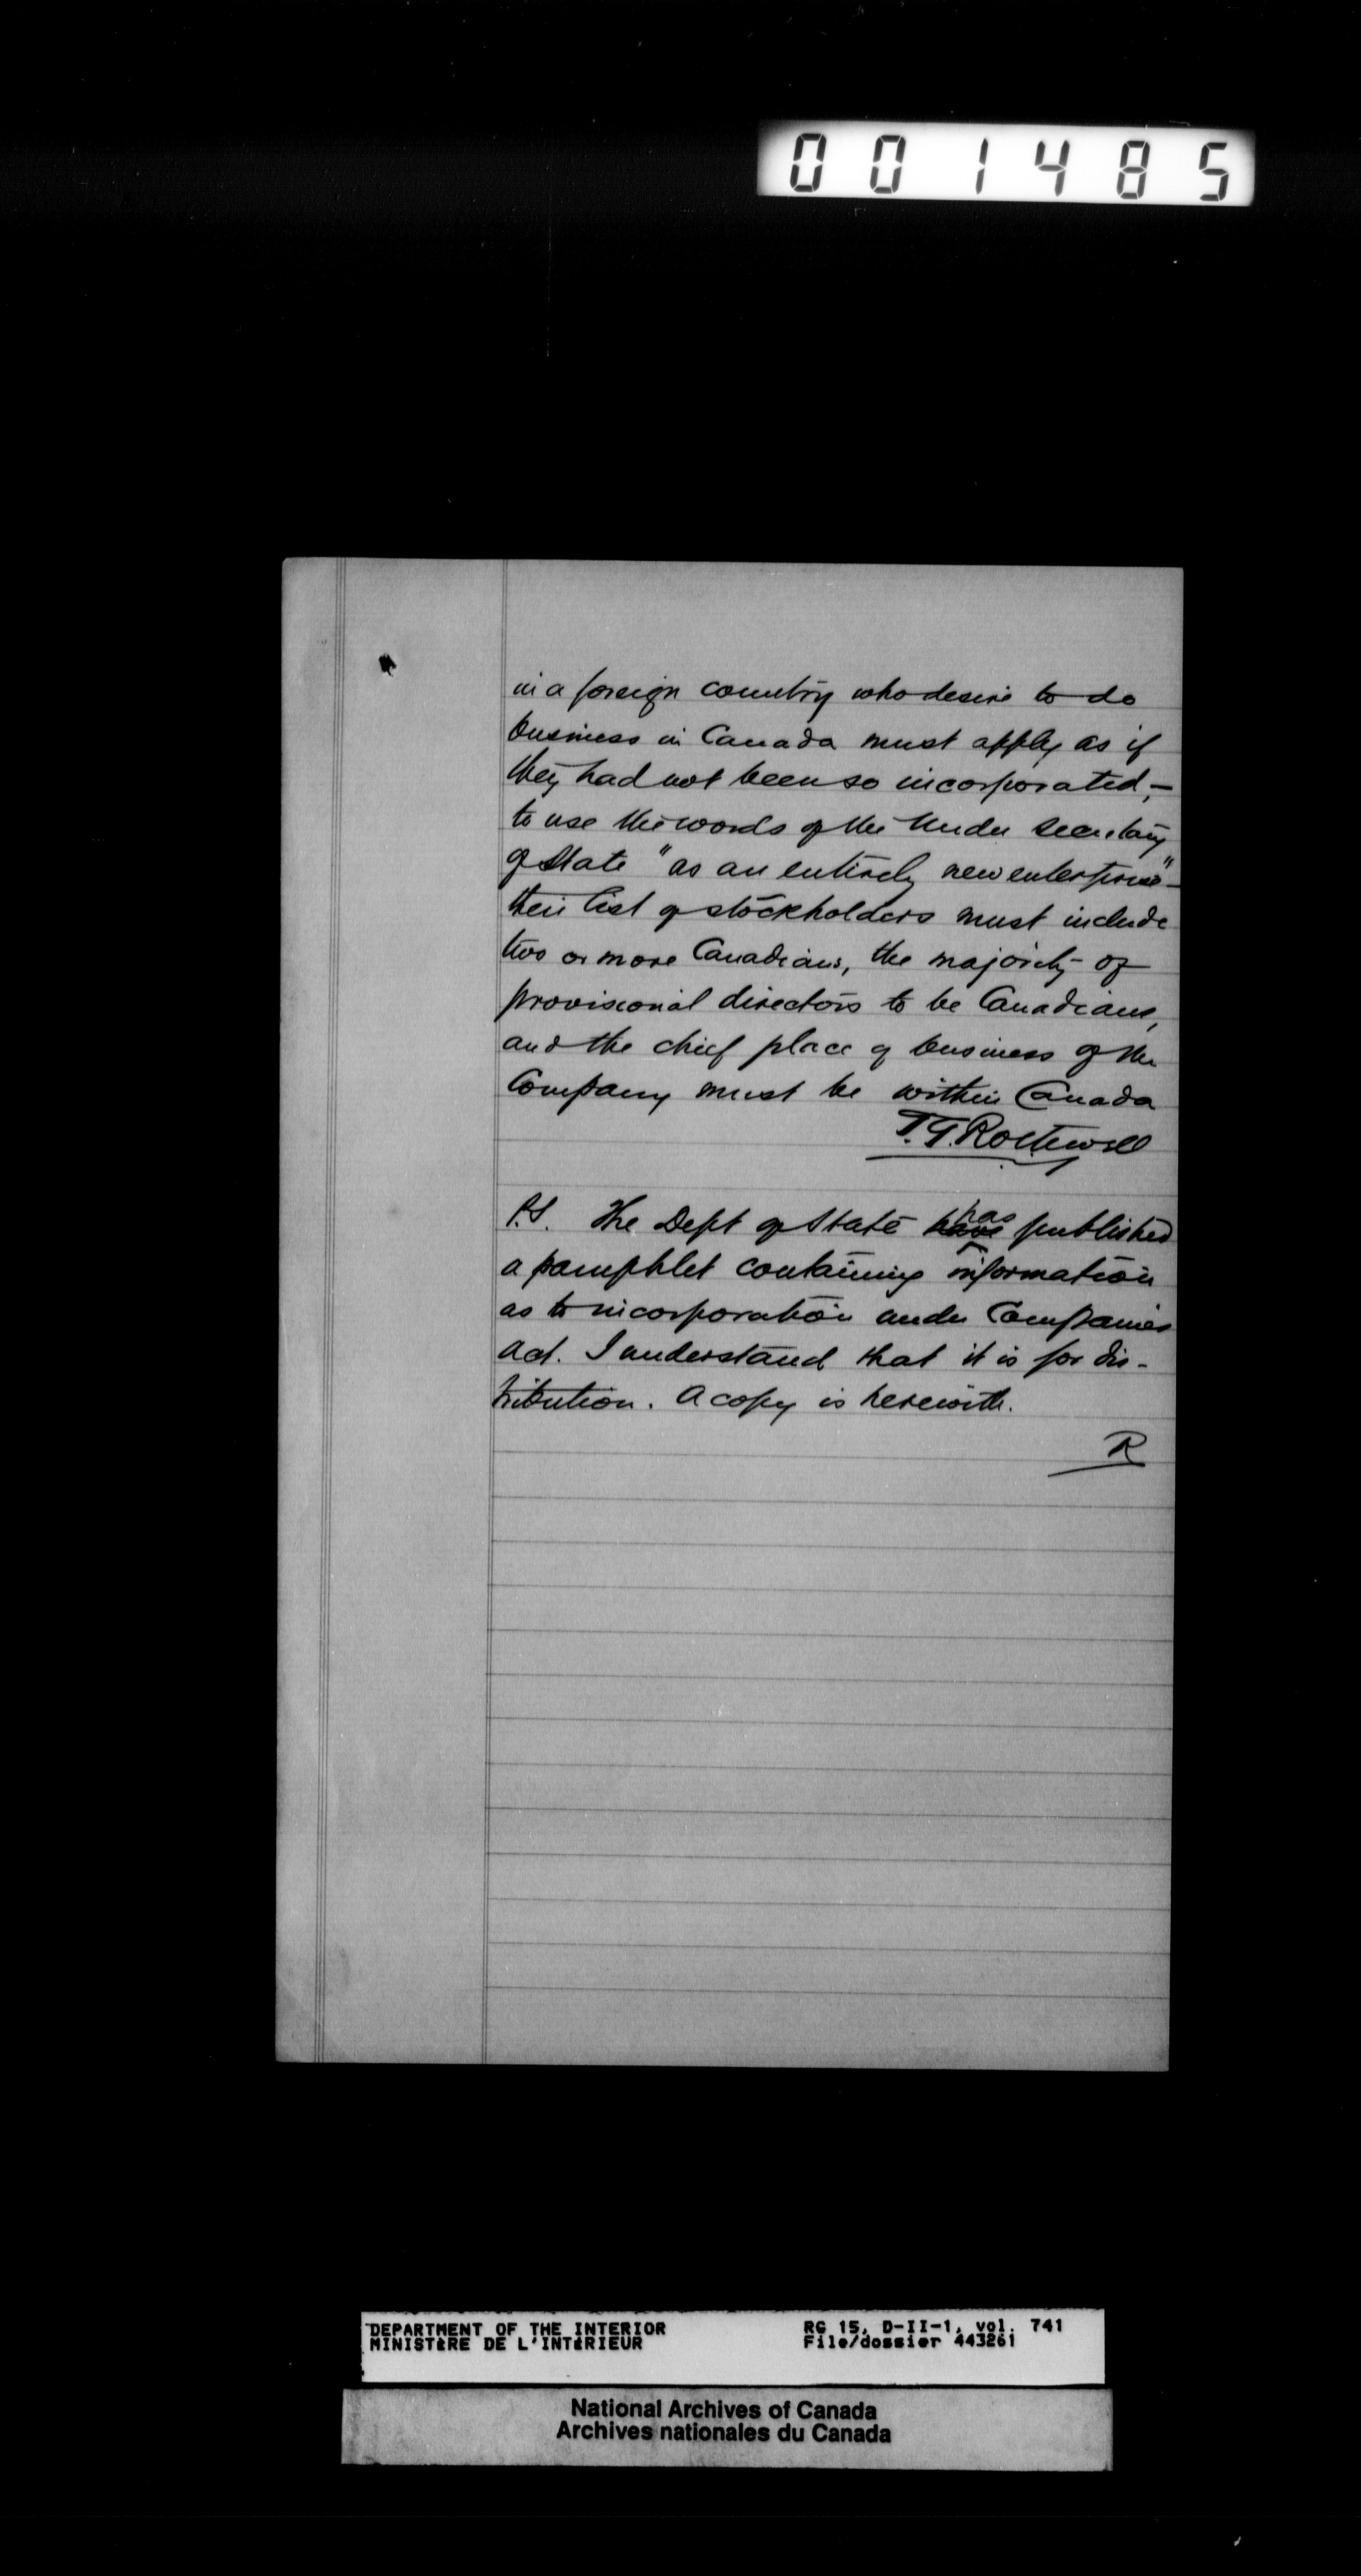 001485
in a foreign country who desire to do
business in Canada must apply as if
they had not been so incorporated,—
to use the words of the Under Secretary
of State "as an entirely new enterprise"—
their list of stockholders must include
two or more Canadians, the majority of
provisional directors to be Canadians,
and the chief place of business of the
Company must be within Canada
T.G. Rothwell
P.S. The Dept of State have has published
a pamphlet containing information
as to incorporation under Companies
Act. I understand that it is for dis-
tribution. A copy is herewith.
R
DEPARTMENT OF THE INTERIOR RG 15, D-II-1, vol. 741
MINISTÈRE DE L'INTÉRIEUR File/dossier 443261
National Archives of Canada
Archives nationales du Canada